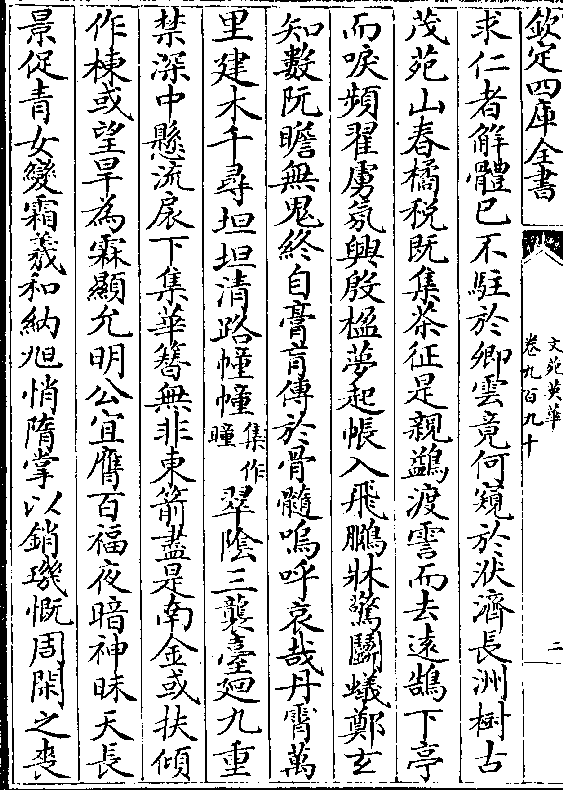 欽定四庫全書
文苑英華
卷九百九十
二
求仁者解體已不駐於卿雲竟何窺於汏濟長洲樹古
茂苑山春橘税既集茶征是親鷁渡雪而去遠鵠下亭
而唳頻翟虜氛興殷楹夢起帳入飛鵩牀驚鬭蟻鄭玄
知數阮瞻無鬼終自膏肓傳於骨髓嗚呼哀哉丹霄萬
里建木千尋坦坦清路幢幢集作瞳翠陰三襲臺廻九重
禁深中懸流扆下集華簪無非東箭盡是南金或扶傾
作棟或望旱為霖顯允明公宜膺百福夜暗神昧天長
景促青女變霜羲和納旭悄隋掌以銷璣慨周閑之喪